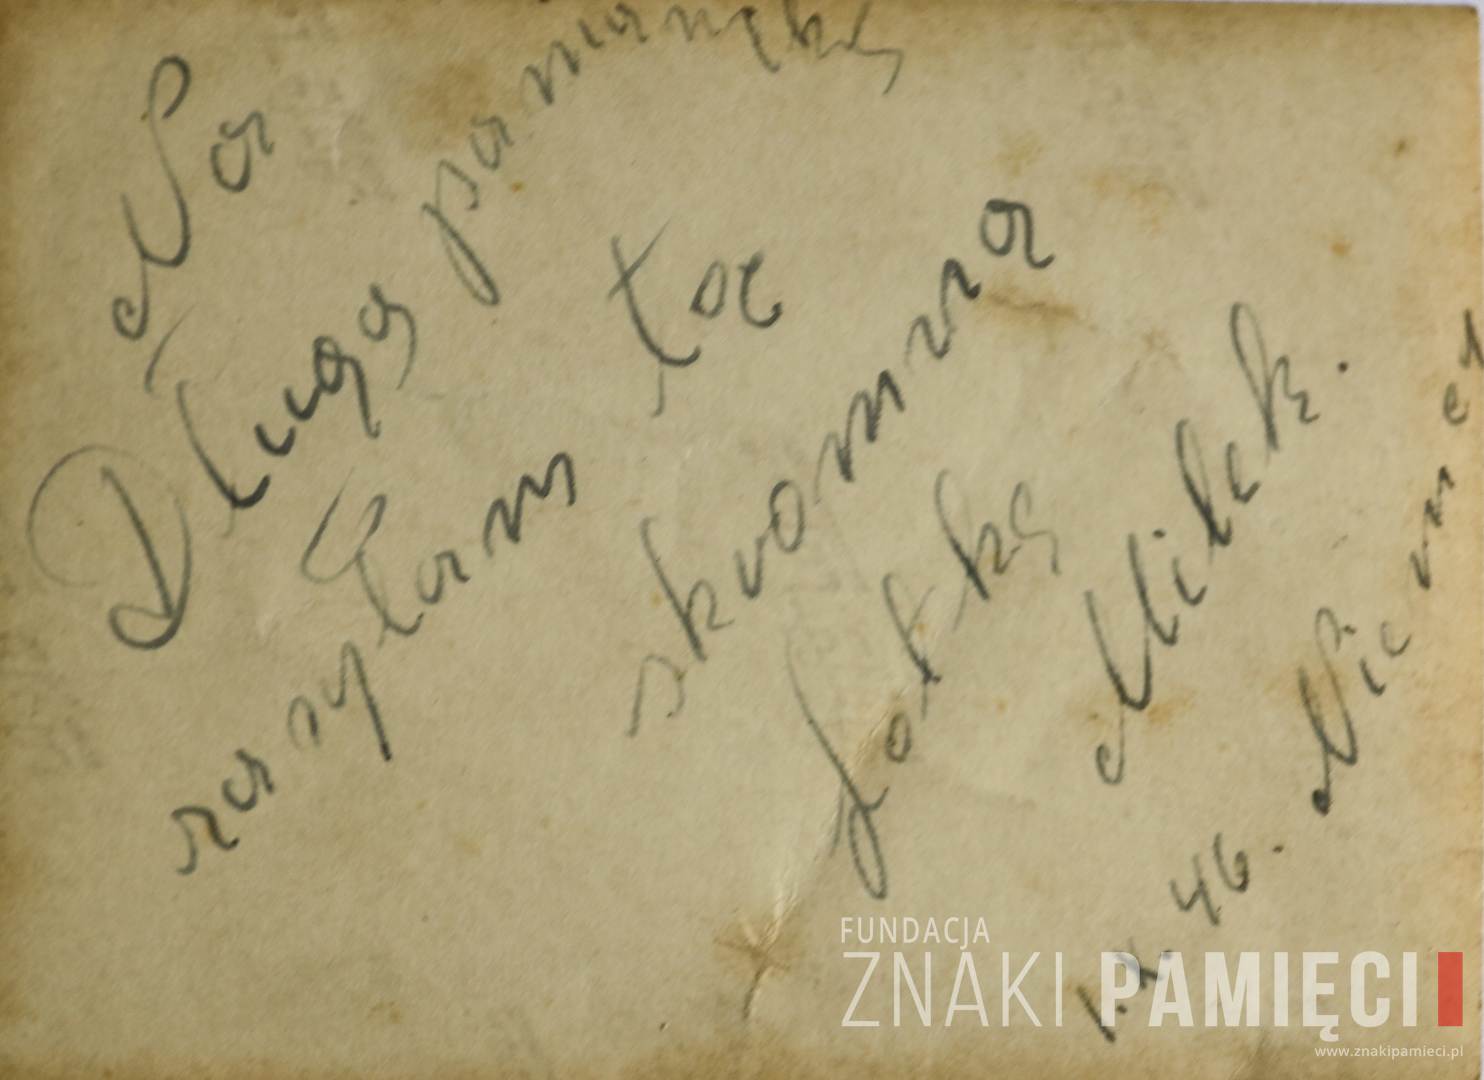 Na
Długą pamiątkę
rasyłam tą
skromną
fotkę
Milek.
1. X. 46. Niemcy
FUNDACJA
ZNAKI PAMIĘCI
www.znakipamieci.pl